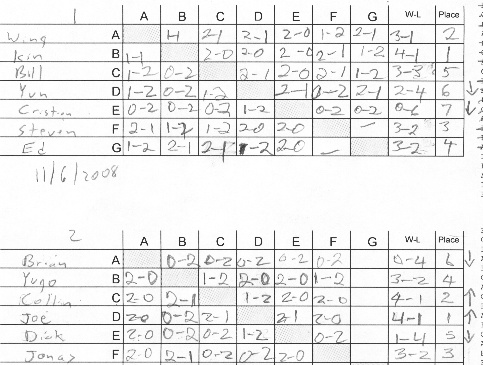 1 A B C D E F G W-L Place
Wing A 1-1 2-1 2-1 2-0 1-2 2-1 3-1 2
Kin B 1-1 2-0 2-0 2-0 2-1 1-2 4-1 1
Bill C 1-2 0-2 2-1 2-0 2-1 1-2 3-3 5
Yun D 1-2 0-2 1-2 2-1 0-2 2-1 2-4 6 ↓
Cristian E 0-2 0-2 0-2 1-2 0-2 0-2 0-6 7 ↓
Steven F 2-1 1-2 1-2 2-0 2-0 – 3-2 3
Ed G 1-2 2-1 2-1 1-2 2-0 – 3-2 4
11/6/2008
2 A B C D E F G W-L Place
Brian A 0-2 0-2 0-2 0-2 0-2 0-4 6 ↓
Yugo B 2-0 1-2 2-0 2-0 1-2 3-2 4
Collin C 2-0 2-1 1-2 2-0 2-0 4-1 2 ↑
Joe D 2-0 0-2 2-1 2-1 2-0 4-1 1 ↑
Dick E 2-0 0-2 0-2 1-2 0-2 1-4 5 ↓
Jonas F 2-0 2-1 0-2 0-2 2-0 3-2 3